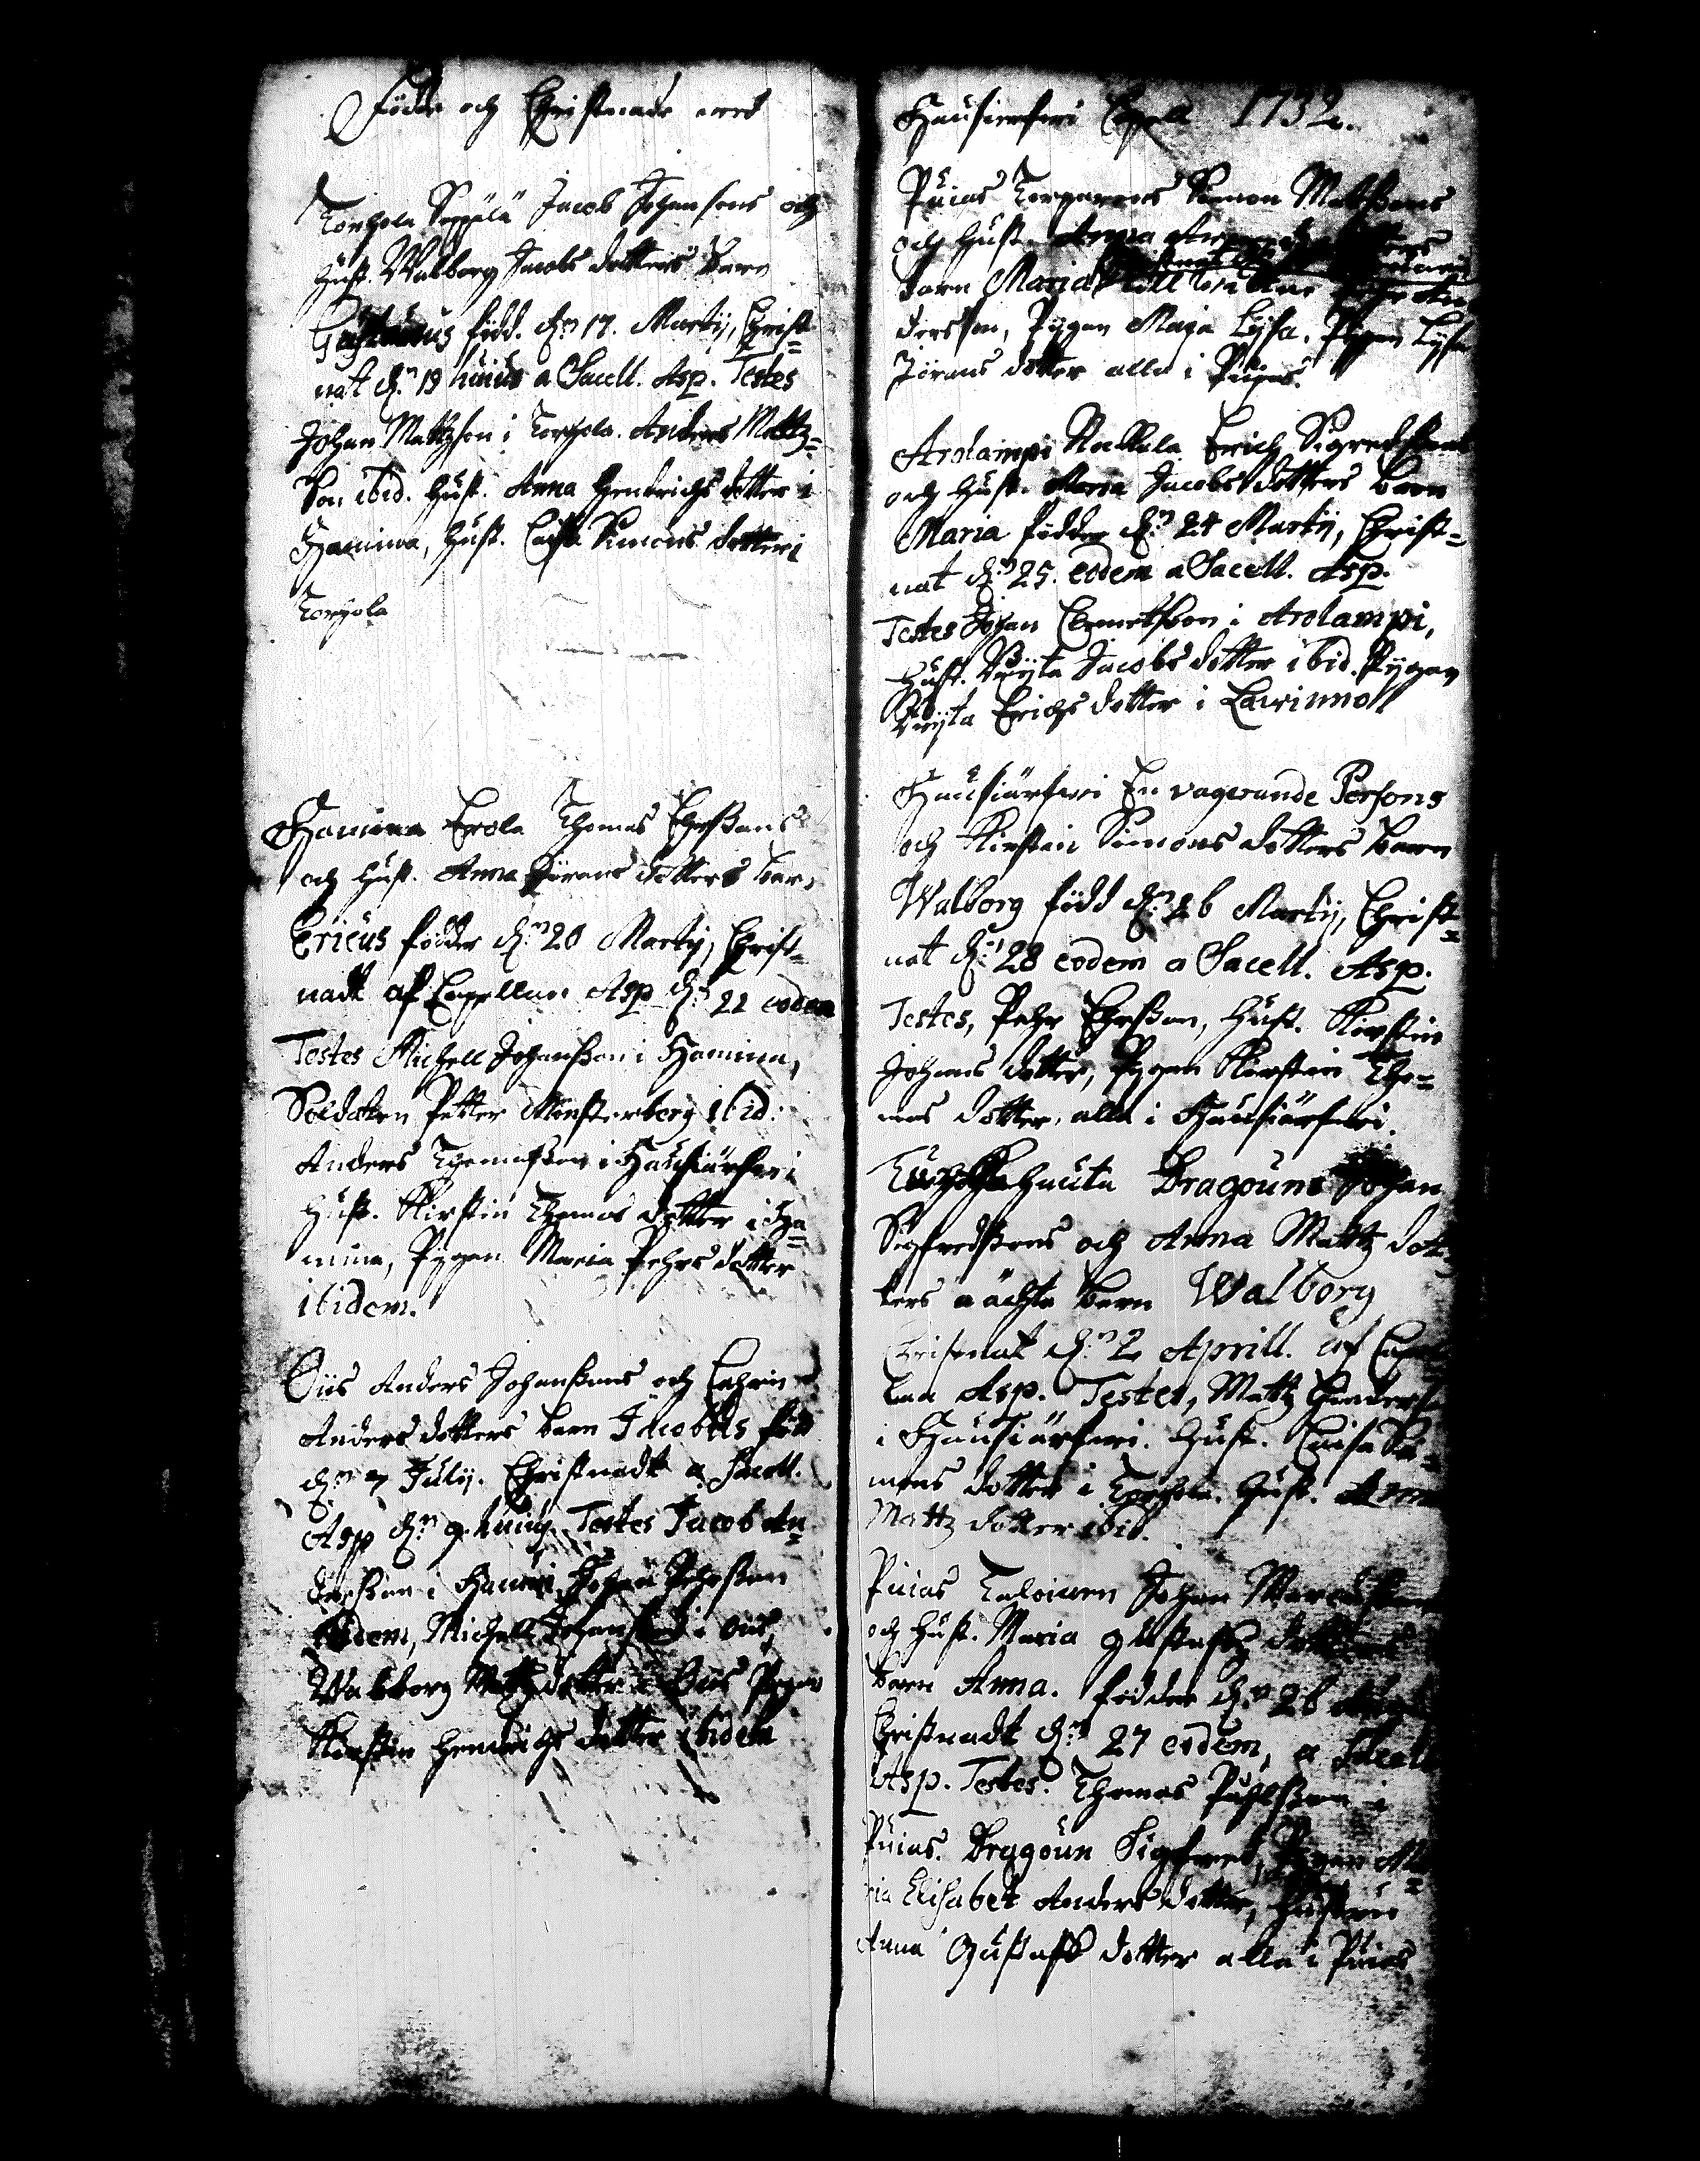 Födde och Christnade wed
Torhola Seppälä Jacob Johansons och
hust. Walborg Jacobs dotters barn
Gustavus född. d:n 17. Martij, Christ=
nat d:n 19 huius a Sacell. Asp. Testes
Johan Mattzson i Torhola. Anders Mattz=
son ibid. hust. Anna Hendrichs dotter i
Hamina, hust. Caisa Simons dotter i
Torhola
Hamina Erola Thomas Ehrssons
och hust. Anna Jörans dotters barn
Ericus födder d:n 20 Martij, Christ=
nadt af Capellan Asp d:n 22 eodem
Testes Michell Johansson i Hamina,
Soldaten Petter Mönsterberg ibid:
Anders Thomasson i Hausiärfwi
hust. Kirstin Thomas dotter i Ha=
mina, Pygan Maria Pehrs dotter
ibidem.
Öiis Anders Johanssons och Cahrin
Anders dotters barn Jacobus föd
d:n 7 Julij. Christnadt a Sacell.
Asp d:n 9. huius. Testes Jacob An=
dersson i Johan Pehrsson
ibidem, Michell Johansson i Öiis,
Walborg Mattz dotter i Öiis Pygan
Kirstin Hendrichs dotter ibidem
Hausierfwi Capell 1732.
Puias Torparens Simon Mattssons
och hust. Anna
barn Maria till
dersson, Pygan Maja Lijsa. Pygan Lijsa
Jörans dotter alla i Puias.
Arolampi Rackila Erich Sigredssons
och hust. Maria Jacobs dotters barn
Maria födder d:n 24 Martij, Christ=
nat d:n 25. eodem a Sacell. Asp.
Testes Johan Clemetsson i Arolampi,
hust. Brijta Jacobs dotter ibid. Pygan
Brijta Erichs dotter i Lavinno
Hausiärfwi En vagerande Persons
och Kirstin Simons dotters barn
Walborg född d:n 26 Martij, Christ=
nat d:n 28 eodem a Sacell. Asp.
Testes, Pehr Ehrsson, hust. Kirstin
Johans dotter, Pygan Kirstin Tho=
mas dotter, alla i Hausiärfwi.
Dragouns Johan
Sigfredssons och Anna Mattz dot=
ters oächta barn Walborg
Christnat d:n 2 Aprill. af Capel
lan Asp. Testes, Mattz
i Hausiärfwi. hust. Caisa Si=
mons dotter i Torhola. hust. Anna
Mattz dotter ibid.
Puias Taloinen Johan Marcusson
och hust. Maria Gustafs dotters
barn Anna. födder d:n 26
Christnadt d:n 27 eodem, a Sacell
Asp. Testes. Thomas Påhlsson i
Puias. Dragoun Sigfred, Pygan Ma=
ria Elisabet Anders dotter, hustru
Anna Gustafs dotter alla i Puias